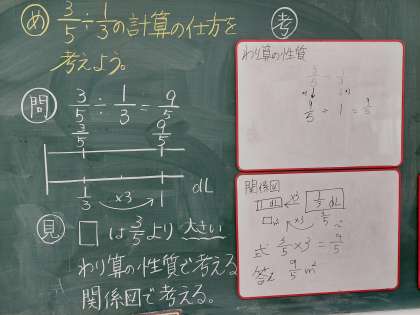 め 3/5÷1/3の計算の仕方を
考えよう。
問 3/5÷1/3=9/5
3/5 9/5
1/3 ×3 1 dL
見 □は3/5より大きい
わり算の性質で考える
関係図で考える。
考
わり算の性質
3/5÷1/3
9/5÷1=9/5
関係図
1dL ×3 1/3dL
□ ×3 3/5
式 3/5×3=9/5
答え 9/5m²